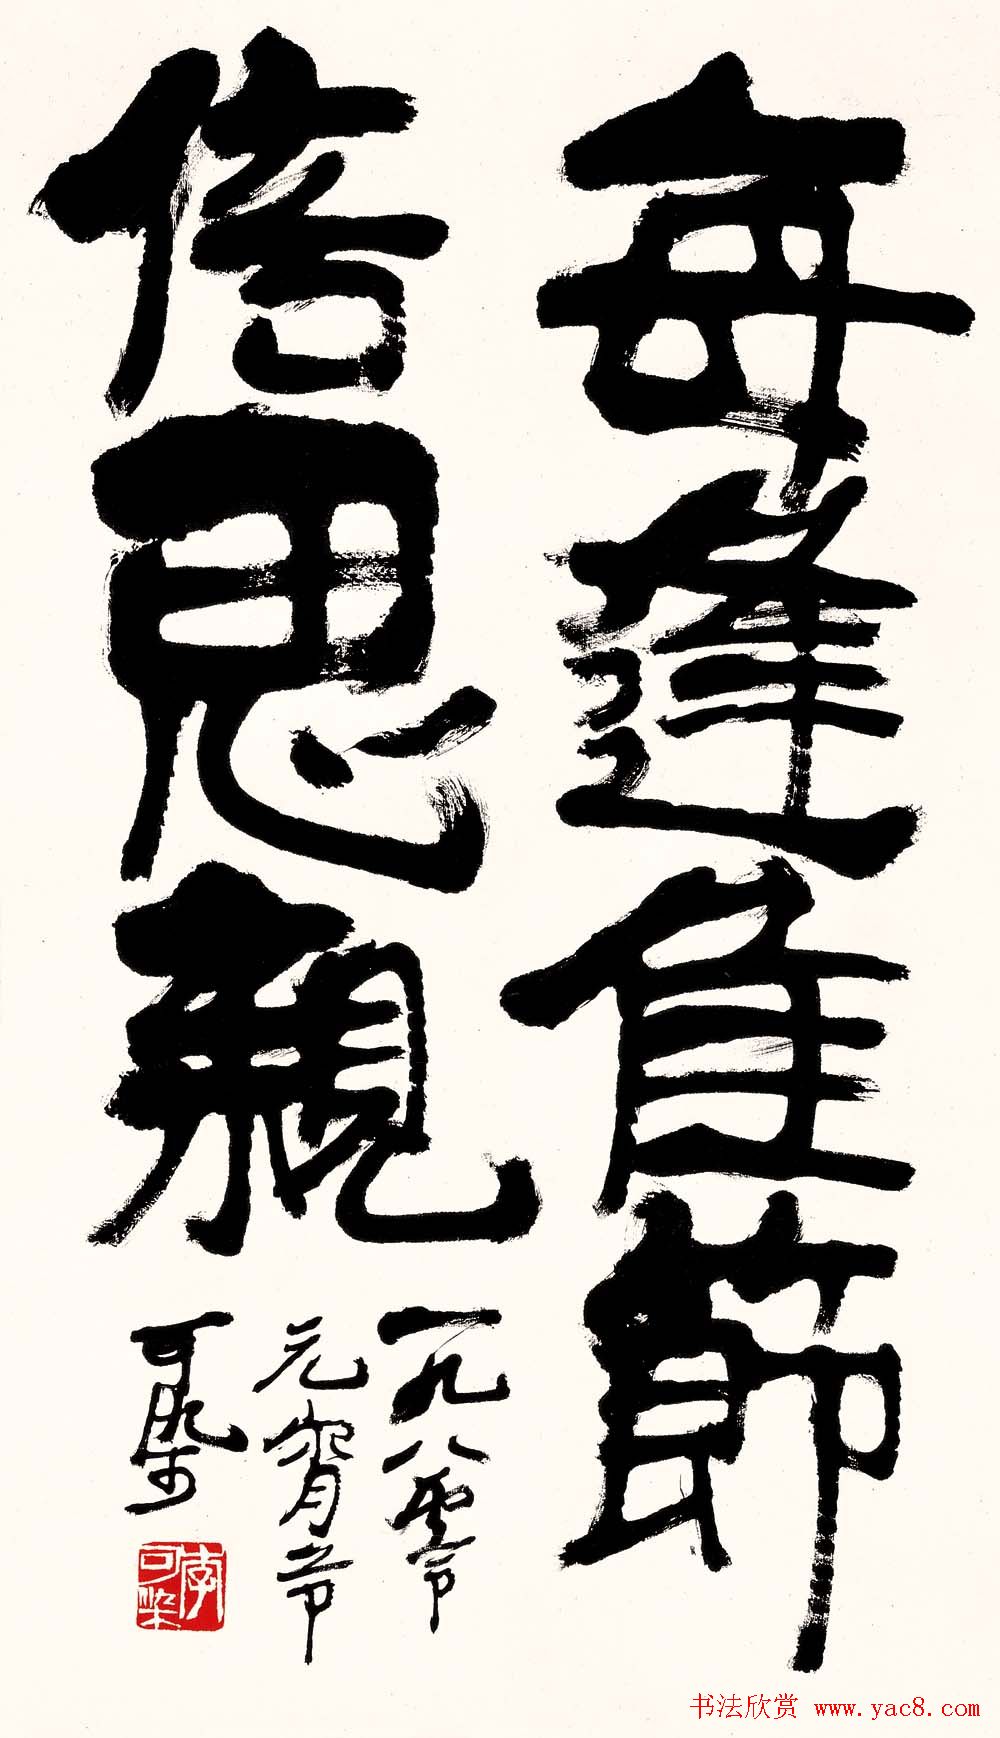 每逢佳節
倍思親
一九八零
元宵节
可染
李可染
书法欣赏 www.yac8.com